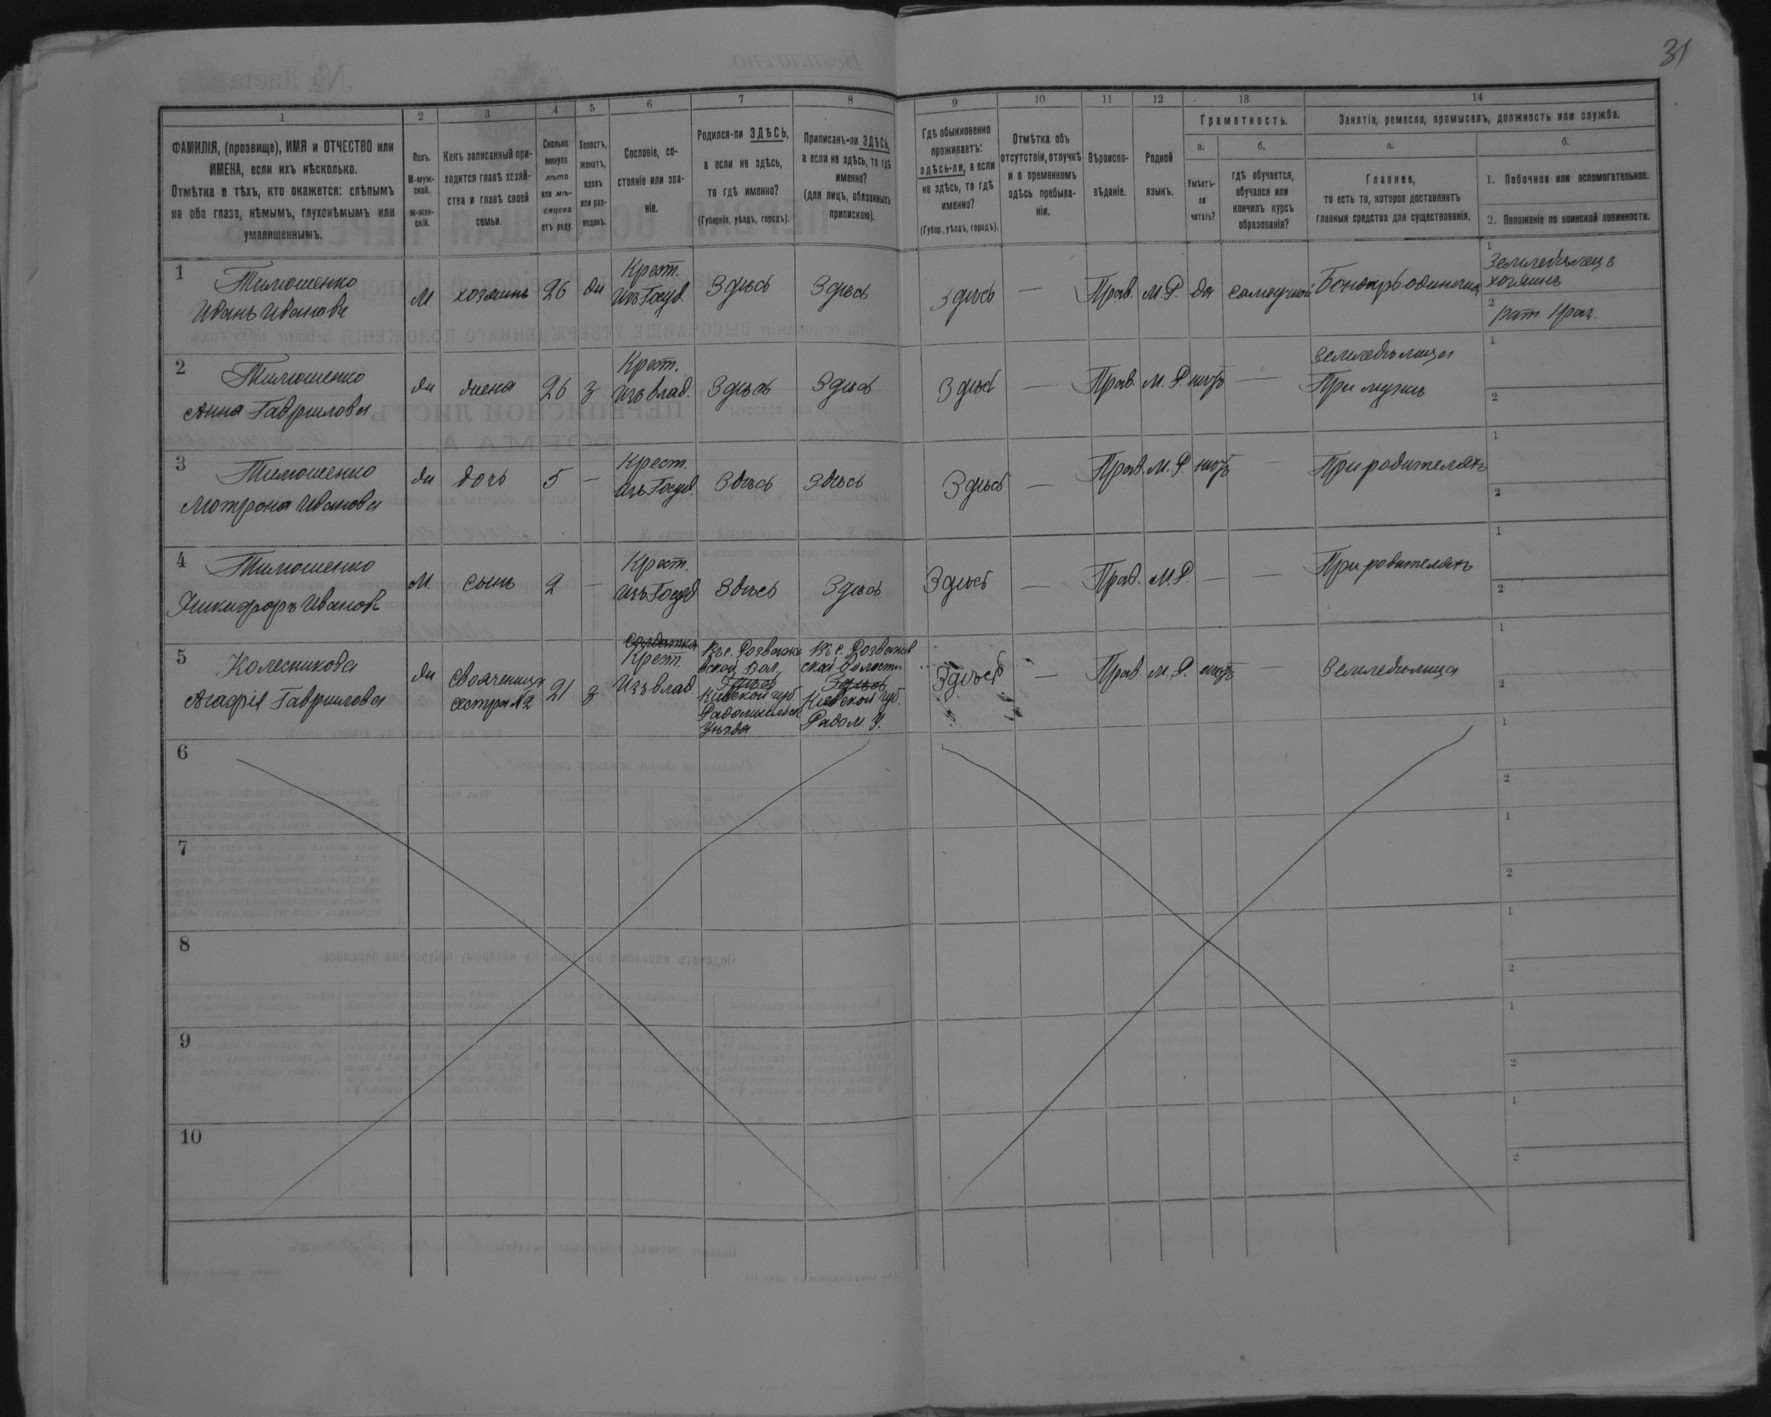 31
1
2
3
4
5
6
7
8
9
10
11
12
13
14
ФАМИЛІЯ, (прозвище), ИМЯ и ОТЧЕСТВО или
ИМЕНА, если ихъ нѣсколько.
Отмѣтка о тѣхъ, кто окажется: слѣпымъ
на оба глаза, нѣмымъ, глухонѣмымъ или
умалишеннымъ.
Полъ.
М-муж-
ской.
Ж-жен-
скій.
Какъ записанный при-
ходится главѣ хозяй-
ства и главѣ своей
семьи.
Сколько
минуло
лѣтъ
или мѣ-
сяцевъ
отъ роду.
Холостъ,
женатъ,
вдовъ
или раз-
веденъ.
Сословіе, со-
стояніе или зва-
ніе.
Родился-ли ЗДѢСЬ,
а если не здѣсь,
то гдѣ именно?
(Губернія, уѣздъ, городъ).
Приписанъ-ли ЗДѢСЬ,
а если не здѣсь, то гдѣ
именно?
(для лицъ, обязанныхъ
припискою).
Гдѣ обыкновенно
проживаетъ:
здѣсь-ли, а если
не здѣсь, то гдѣ
именно?
(Губер., уѣздъ, городъ).
Отмѣтка объ
отсутствіи, отлучкѣ
и о временномъ
здѣсь пребыва-
ніи.
Вѣроиспо-
вѣданіе.
Родной
языкъ.
Грамотность.
а.
Умѣетъ-
ли
читать?
б.
гдѣ обучается,
обучался или
кончилъ курсъ
образованія?
Занятіе, ремесло, промыселъ, должность или служба.
а.
Главное,
то есть то, которое доставляетъ
главныя средства для существованія.
б.
1. Побочное или вспомогательное.
2. Положеніе по воинской повинности.
1
Тимошенко
Иванъ Ивановъ
М
хозяинъ
26
ж
Крест.
изъ Госуд.
Здѣсь
Здѣсь
Здѣсь
—
Прав.
М.Р.
да
самоучкой
Бондарь одиночка
1
Земледѣлецъ
хозяинъ
2
2
Тимошенко
Анна Гаврилова
ж
жена
26
з
Крест.
изъ влад.
Здѣсь
Здѣсь
Здѣсь
—
Прав.
М.Р.
нѣтъ
—
При мужѣ
1
2
3
Тимошенко
Мотрона Иванова
ж
дочь
5
—
Крест.
изъ Госуд.
Здѣсь
Здѣсь
Здѣсь
—
Прав.
М.Р.
нѣтъ
—
При родителяхъ
1
2
4
Тимошенко
Никифоръ Ивановъ
М
сынъ
2
—
Крест.
изъ Госуд
Здѣсь
Здѣсь
Здѣсь
—
Прав.
М.Р.
—
—
При родителяхъ
1
2
5
Колесникова
Агафія Гаврилова
ж
свояченица
сестра №2
21
з
солдатка
Крест.
Изъ влад
вской Вол,
Здѣсь
Кіевской губ
Радомысльск
Уѣзда
ской Волости
Здѣсь
Кіевской губ.
Радом. У.
Здѣсь
—
Прав.
М.Р.
нѣтъ
—
Земледѣлица
1
2
6
1
2
7
1
2
8
1
2
9
1
2
10
1
2